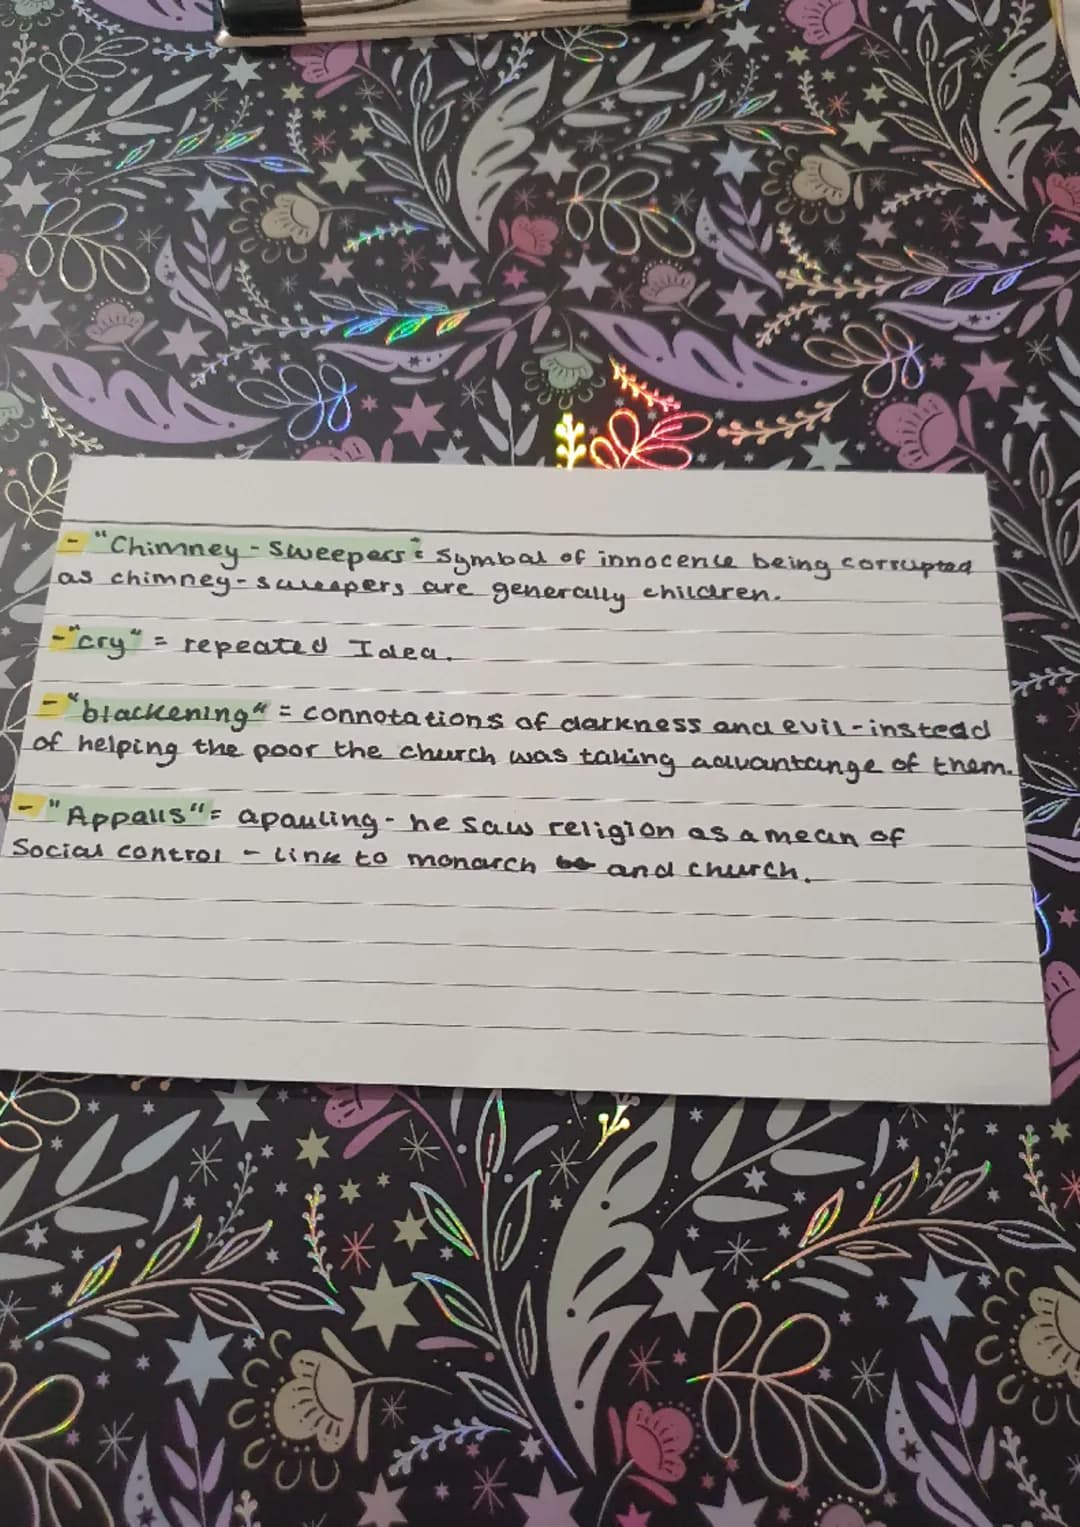 - "Chimney-Sweepers": Symbol of innocence being corrupted
as chimney-sweepers are generally children.
-"cry" = repeated Idea.
- "blackening" = connotations of darkness and evil-instead
of helping the poor the church was taking advantange of them.
- "Appalls" = apauling - he saw religion as a mean of
Social control - Link to monarch and church.